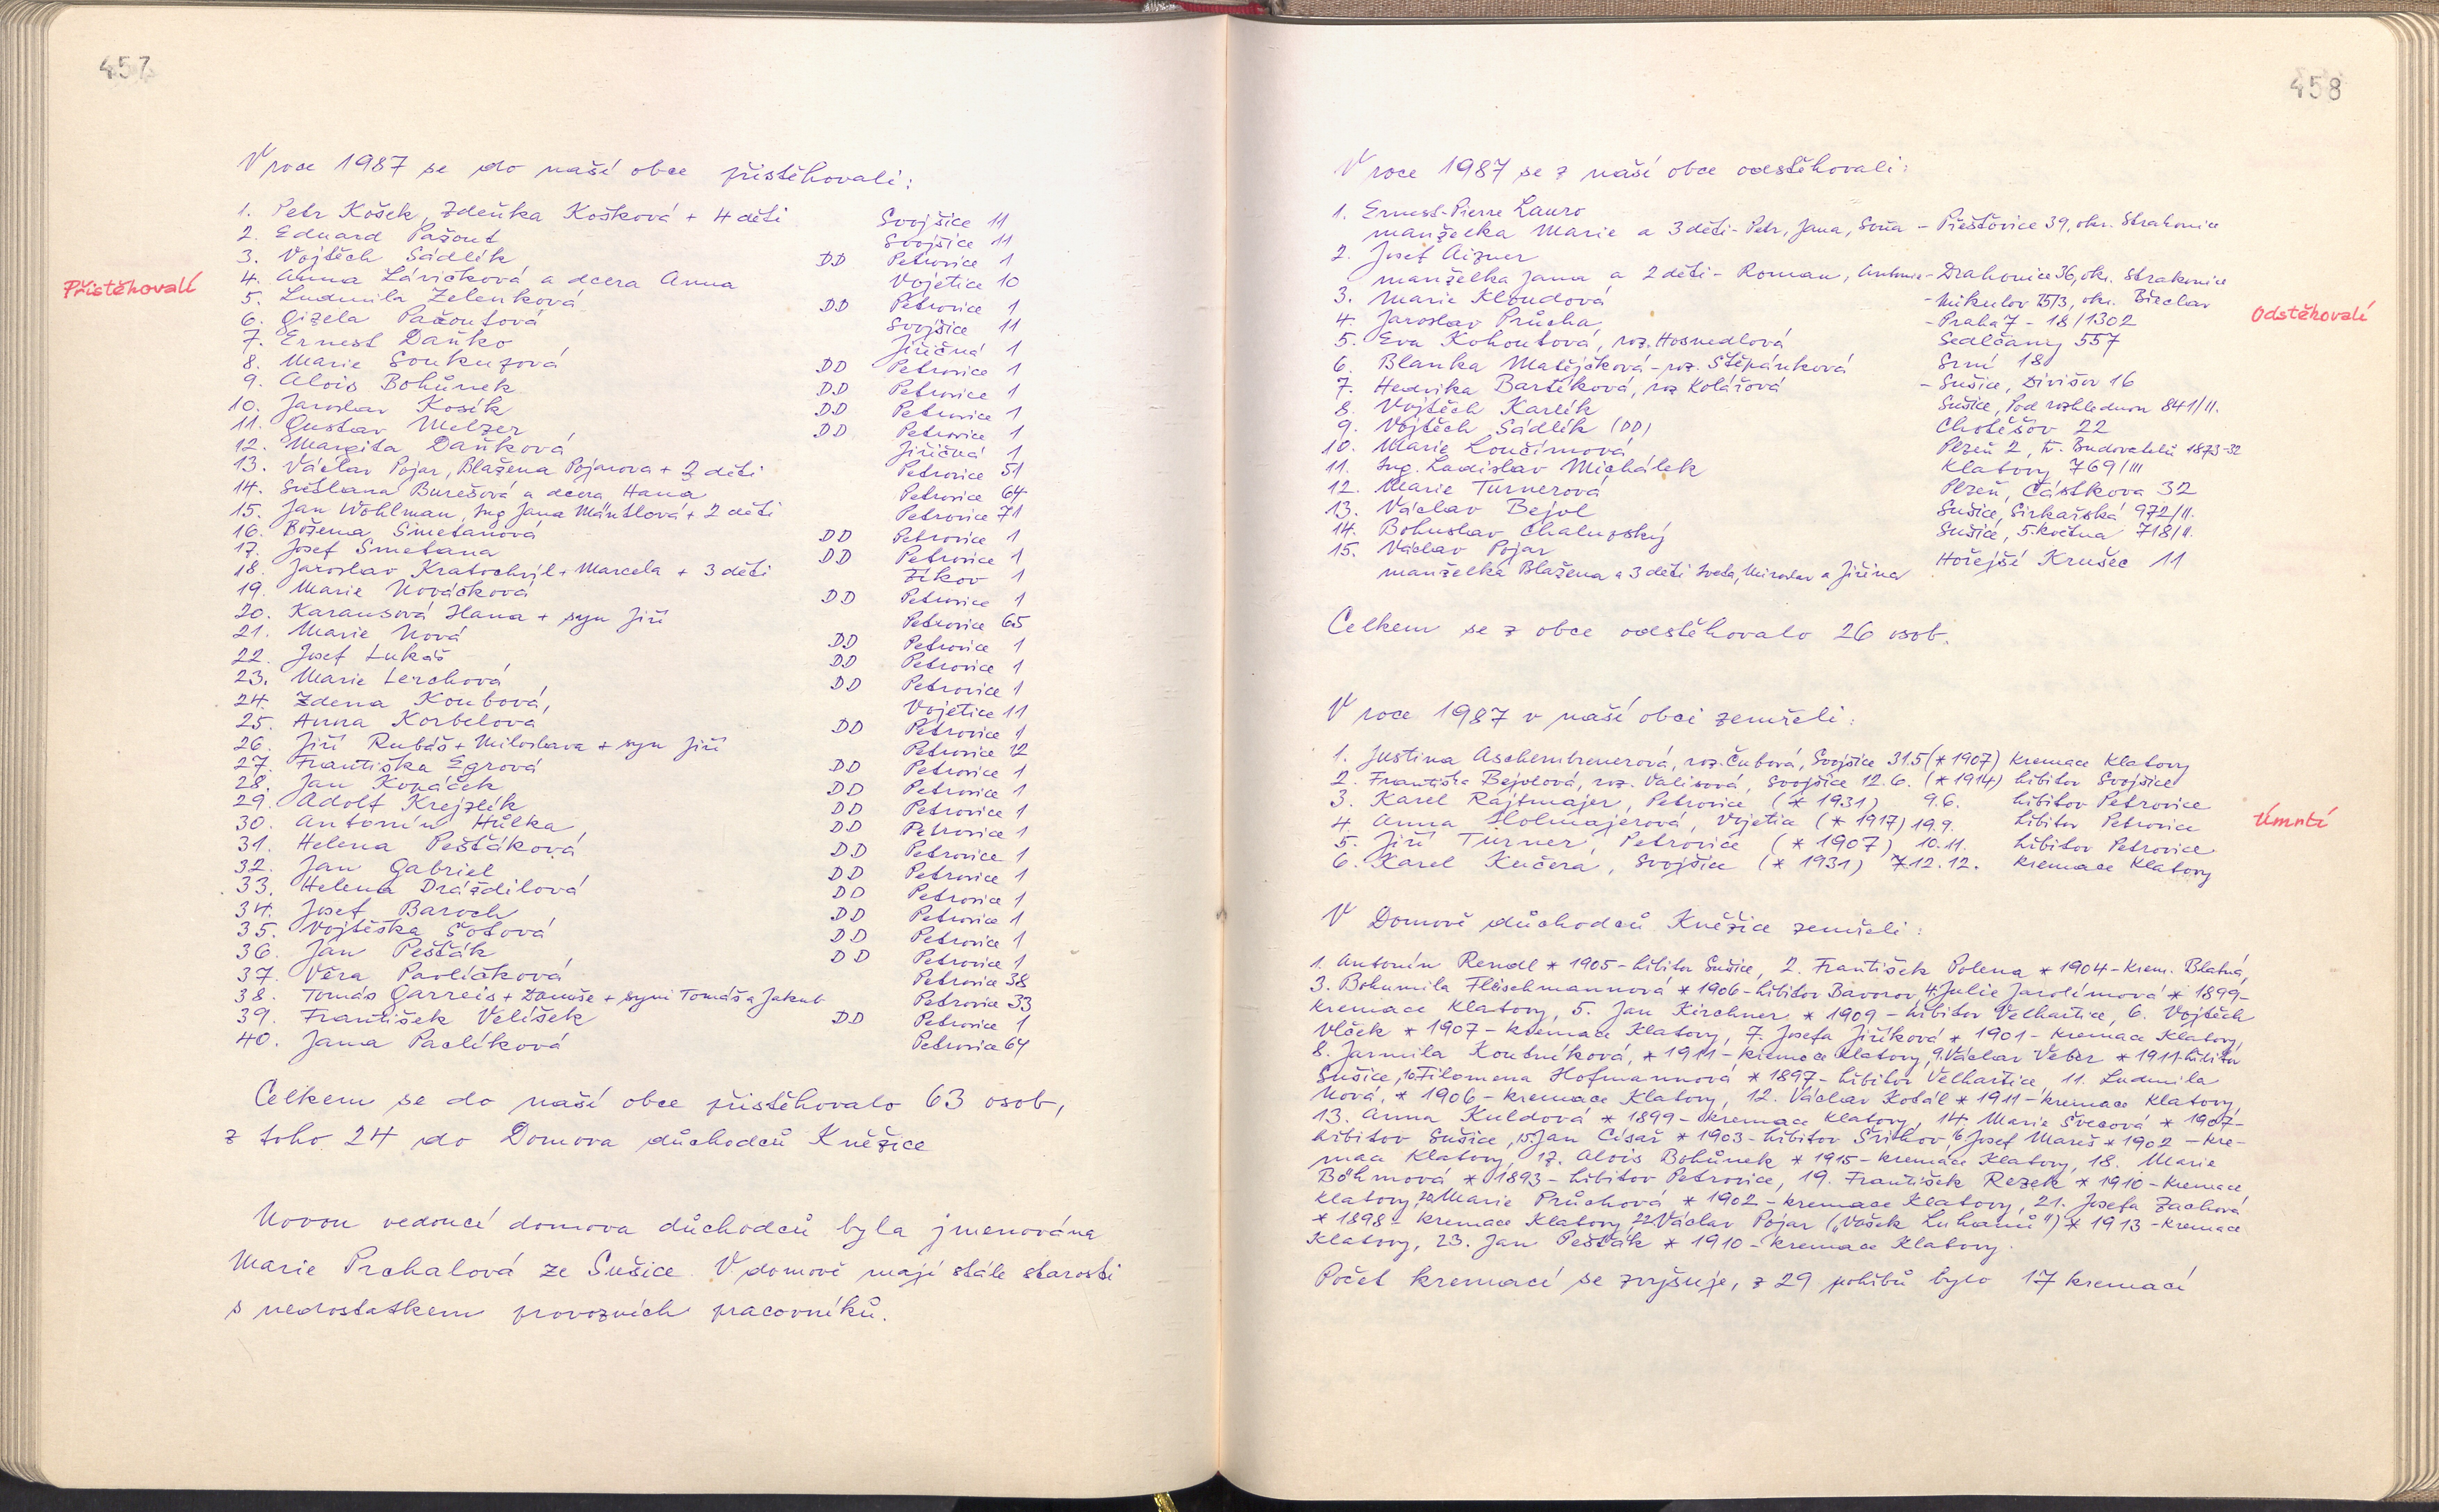 457
V roce 1987 se do naší obce přistěhovali:
Přistěhovalí
1. Petr Košek, Zdeňka Košková + 4 děti Svojšice 11
2. Eduard Pažout Svojšice 11
3. Vojtěch Sádlík DD Petrovice 1
4. Anna Lávičková a dcera Anna Vojetice 10
5. Ludmila Zelenková DD Petrovice 1
6. Gizela Pažoutová Svojšice 11
7. Ernest Daňko Jiřičná 1
8. Marie Soukupová DD Petrovice 1
9. Alois Bohůnek DD Petrovice 1
10. Jaroslav Kosík DD Petrovice 1
11. Gustav Melzer DD Petrovice 1
12. Margita Daňková Jiřičná 1
13. Václav Pojar, Blažena Pojarova + 3 děti Petrovice 51
14. Světlana Burešová a dcera Hana Petrovice 64
15. Jan Wöhlman, Ing Jana Mántlová + 2 děti Petrovice 71
16. Božena Smetanová DD Petrovice 1
17. Josef Smetana DD Petrovice 1
18. Jaroslav Kratochvíl + Marcela + 3 děti Žíkov 1
19. Marie Nováčková DD Petrovice 1
20. Karausová Hana + syn Jiří Petrovice 65
21. Marie Nová DD Petrovice 1
22. Josef Lukáš DD Petrovice 1
23. Marie Lerchová DD Petrovice 1
24. Zdena Koubová, Vojetice 11
25. Anna Korbelová DD Petrovice 1
26. Jiří Rubáš + Miloslava + syn Jiří Petrovice 12
27. Františka Egrová DD Petrovice 1
28. Jan Kopáček DD Petrovice 1
29. Adolf Krejzlík DD Petrovice 1
30. Antonín Hůlka DD Petrovice 1
31. Helena Pešťáková DD Petrovice 1
32. Jan Gabriel DD Petrovice 1
33. Helena Dráždilová DD Petrovice 1
34. Josef Baroch DD Petrovice 1
35. Vojtěška Šotová DD Petrovice 1
36. Jan Pešťák DD Petrovice 1
37. Věra Pavlíčková Petrovice 38
38. Tomáš Garreis + Danuše + syni Tomáš a Jakub Petrovice 33
39. František Velíšek DD Petrovice 1
40. Jana Paclíková Petrovice 64
Celkem se do naší obce přistěhovalo 63 osob,
z toho 24 do Domova důchodců Kněžice
Novou vedoucí domova důchodců byla jmenována
Marie Prchalová ze Sušice. V domově mají stále starosti
s nedostatkem provozních pracovníků.
458
V roce 1987 se z naší obce odstěhovali:
1. Ernest-Pierre Lauro
manželka Marie a 3 děti - Petr, Jana, Soňa - Přešťovice 39, okr. Strakonice
2. Josef Aizner
manželka Jana a 2 děti - Roman, Antonie - Drahonice 36, okr. Strakonice
3. Marie Kloudová - Mikulov 25/3, okr. Břeclav
Odstěhovalí
4. Jaroslav Průcha - Praha 7 - 18/1302
5. Eva Kohoutová, roz. Hosnedlová Sedlčany 557
6. Blanka Matějčková - roz. Štěpánková Srní 18
7. Hedvika Bartíková, roz Kolářová - Sušice, Divišov 16
8. Vojtěch Karlík Sušice, Pod rozhlednou 841/II.
9. Vojtěch Sádlík (DD) Chotěšov 22
10. Marie Loučimová Plzeň 2, tř. Budovatelů 1873-32
11. Ing. Ladislav Michálek Klatovy 769/III
12. Marie Turnerová Plzeň, Částkova 32
13. Václav Bejvl Sušice, Sirkařská 972/II.
14. Bohuslav Chalupský Sušice, 5. května 718/II.
15. Václav Pojar
manželka Blažena a 3 děti Iveta, Miroslav a Jiřina Hořejší Krušec 11
Celkem se z obce odstěhovalo 26 osob.
V roce 1987 v naší obci zemřeli:
1. Justina Aschenbrenerová, roz. Čubová, Svojšice 31.5 (* 1907) kremace Klatovy
2. Františka Bejvlová, roz. Valisová, Svojšice 12.6. (* 1914) hřbitov Svojšice
3. Karel Rajtmajer, Petrovice (* 1931) 9.6. hřbitov Petrovice
Úmrtí
4 Anna Holmajerová, Vojetice (* 1917) 19.9. hřbitov Petrovice
5. Jiří Turner, Petrovice (* 1907) 10.11. hřbitov Petrovice
6. Karel Kučera, Svojšice (* 1931) 12.12. kremace Klatovy
V Domově důchodců Kněžice zemřeli:
1. Antonín Rendl * 1905 - hřbitov Sušice, 2. František Polena * 1904 - krem. Blatná,
3. Bohumila Fleischmannová * 1906 - hřbitov Bavorov, 4. Julie Jarolímová * 1899 -
kremace Klatovy, 5. Jan Kirchner * 1909 - hřbitov Velhartice, 6. Vojtěch
Vlček * 1907 - kremace Klatovy, 7. Josefa Jiříková * 1901 - kremace Klatovy,
8. Jarmila Koutníková, * 1911 - kremace Klatovy, 9. Václav Veber * 1911 - hřbitov
Sušice, 10. Filomena Hofmannová * 1897 - hřbitov Velhartice, 11. Ludmila
Nová, * 1906 - kremace Klatovy, 12. Václav Kotál * 1911 - kremace Klatovy,
13. Anna Kuldová * 1899 - kremace Klatovy, 14. Marie Švecová * 1907 -
hřbitov Sušice, 15. Jan Císař * 1903 - hřbitov Strihov, 16. Josef Mareš * 1902 - kre-
mace Klatovy, 17. Alois Bohůnek * 1915 - kremace Klatovy, 18. Marie
Böhmová * 1893 - hřbitov Petrovice, 19. František Rezek * 1910 - kremace
Klatovy, 20. Marie Průchová * 1902 - kremace Klatovy, 21. Josefa Zachová
* 1898 - kremace Klatovy, 22. Václav Pojar („Vašek Luhanů") * 1913 - kremace
Klatovy, 23. Jan Pešťák * 1910 - kremace Klatovy.
Počet kremací se zvyšuje, z 29 pohřbů bylo 17 kremací